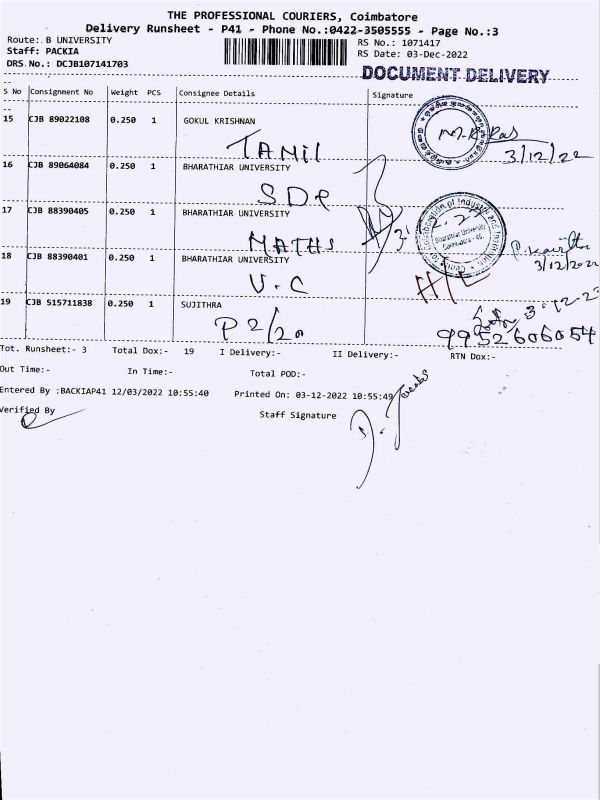 THE PROFESSIONAL COURIERS, Coimbatore
Delivery Runsheet - P41 - Phone No.:0422-3505555 - Page No.:3
Route: B UNIVERSITY RS No.: 1071417
Staff: PACKIA RS Date: 03-Dec-2022
DRS No.: DCJB107141703
DOCUMENT DELIVERY
S No Consignment No Weight PCS Consignee Details Signature
15 CJB 89022108 0.250 1 GOKUL KRISHNAN
TAMIL
3/12/22
16 CJB 89064084 0.250 1 BHARATHIAR UNIVERSITY
SDE
17 CJB 88390405 0.250 1 BHARATHIAR UNIVERSITY
MATHS
Bharathiar University
Coimbatore - 46.
18 CJB 88390401 0.250 1 BHARATHIAR UNIVERSITY
V.C
3/12/2022
19 CJB 515711838 0.250 1 SUJITHRA
P2/20
9952606054
Tot. Runsheet:- 3 Total Dox:- 19 I Delivery:- II Delivery:- RTN Dox:-
Out Time:- In Time:- Total POD:-
Entered By :BACKIAP41 12/03/2022 10:55:40 Printed On: 03-12-2022 10:55:49
Verified By Staff Signature